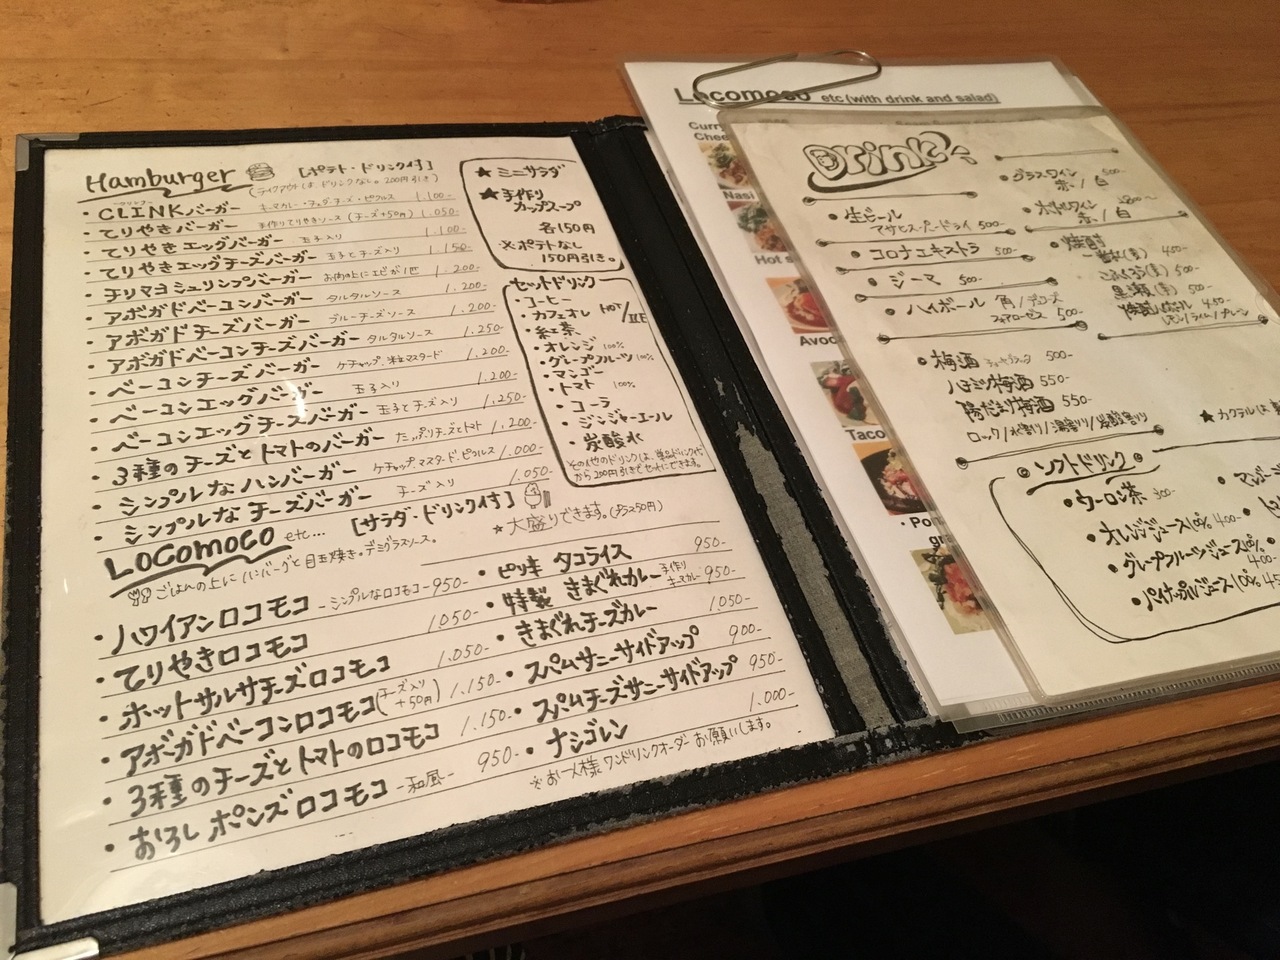 Hamburger [ポテト・ドリンク付]
(テイクアウトは ドリンクなし。200円引き)
・CLINKバーガー キーマカレー・エッグ・チーズ・ピクルス 1.100-
・てりやきバーガー 手作りてりやきソース (チーズ+50円) 1.050-
・てりやきエッグバーガー 玉子入り 1.100-
・てりやきエッグチーズバーガー 玉子とチーズ入り 1.150-
・チリマヨシュリンプバーガー お肉の上にエビが1匹 1.200-
・アボガドベーコンバーガー タルタルソース 1.200-
・アボガドチーズバーガー ブルーチーズソース 1.200-
・アボガドベーコンチーズバーガー タルタルソース 1.250-
・ベーコンチーズバーガー ケチャップ、粒マスタード 1.200-
・ベーコンエッグバーガー 玉子入り 1.200-
・ベーコンエッグチーズバーガー 玉子とチーズ入り 1.250-
・3種のチーズとトマトのバーガー たっぷりチーズとトマト 1.200-
・シンプルなハンバーガー ケチャップ、マスタード・ピクルス 1.000-
・シンプルなチーズバーガー チーズ入り 1.050-
★ ミニサラダ
★ 手作り
カップスープ
各150円
※ポテトなし
150円引き。
セットドリンク
・コーヒー
・カフェオレ HOT/ICE
・紅茶
・オレンジ 100%
・グレープフルーツ 100%
・マンゴー
・トマト 100%
・コーラ
・ジンジャーエール
・炭酸水
その他のドリンクは、単品ドリンク代
から200円引きでセットにできます。
Locomoco etc... [サラダ・ドリンク付]
★大盛りできます。(プラス250円)
ごはんの上にハンバーグと目玉焼き。デミグラスソース。
・ハワイアンロコモコ -シンプルなロコモコ- 950-
・てりやきロコモコ 1.050-
・ホットサルサチーズロコモコ 1.050-
・アボガドベーコンロコモコ(チーズ入り+50円) 1.150-
・3種のチーズとトマトのロコモコ 1.150-
・おろしポンズロコモコ -和風- 950-
・ピリ辛 タコライス 950-
・特製 きまぐれカレー 手作りキーマカレー 950-
・きまぐれチーズカレー 1.050-
・スパムサニーサイドアップ 900-
・スパムチーズサニーサイドアップ 950-
・ナシゴレン 1.000-
※お一人様ワンドリンクオーダーお願いします。
Locomoco etc (with drink and salad)
Curry
Chee
Nasi
Hot s
Avoc
Taco
Drink
・生ビール
アサヒスーパードライ 500-
・コロナエキストラ 500-
・ジーマ 500-
・ハイボール 角/デュワーズ
フォアローゼス 500-
・梅酒 チョーヤウメッシュ 500-
ハチミツ梅酒 550-
陽だまり梅酒 550-
ロック/水割り/湯割り/炭酸割り
・グラスワイン 500-
赤/白
・ボトルワイン
赤/白
・焼酎
500-
500-
450-
ソフトドリンク
・ウーロン茶 300-
・オレンジジュース100% 400-
・グレープフルーツジュース100%
400-
・パイナップルジュース100%